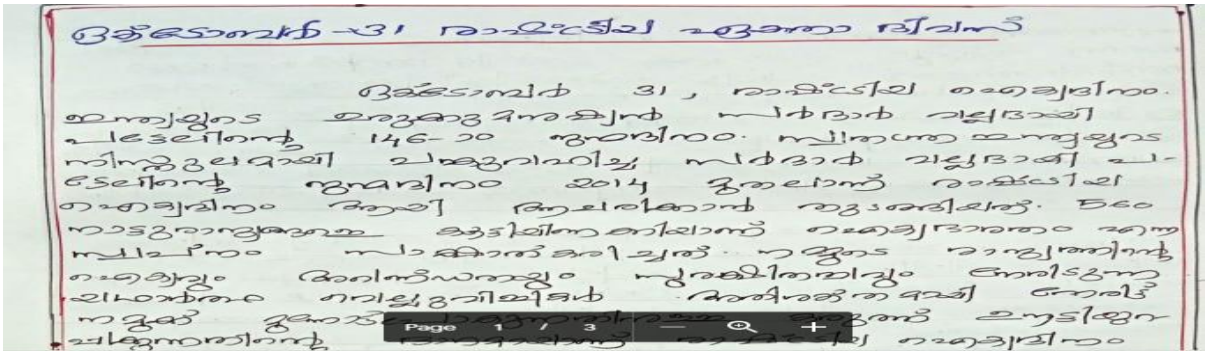 ഒക്ടോബർ -31 രാഷ്ട്രീയ ഏകതാ ദിവസ്
ഒക്ടോബർ 31, രാഷ്ട്രീയ ഐക്യദിനം.
ഇന്ത്യയുടെ ഉരുക്കുമനുഷ്യൻ സർദാർ വല്ലഭായി
പട്ടേലിന്റെ 146-ാo ജന്മദിനം. സ്വതന്ത്ര ഇന്ത്യയുടെ
നിസ്തുലമായി പങ്കുവഹിച്ച സർദാർ വല്ലഭായി പ-
ട്ടേലിന്റെ ജന്മദിനം 2014 മുതലാണ് രാഷ്ട്രീയ
ഐക്യദിനം ആയി ആചരിക്കാൻ തുടങ്ങിയത്. 560
നാട്ടുരാജ്യങ്ങളെ കൂട്ടിയിണക്കിയാണ് ഐക്യഭാരതം എന്ന
സ്വപ്നം സാക്ഷാത്കരിച്ചത്. നമ്മുടെ രാജ്യത്തിന്റെ
ഐക്യവും അഖണ്ഡതയും സുരക്ഷിതത്വവും നേരിടുന്ന
യഥാർത്ഥ വെല്ലുവിളികൾ നേരിട്
നമുക്ക് കരുത്ത്
ഐക്യദിനം
Page 1 / 3